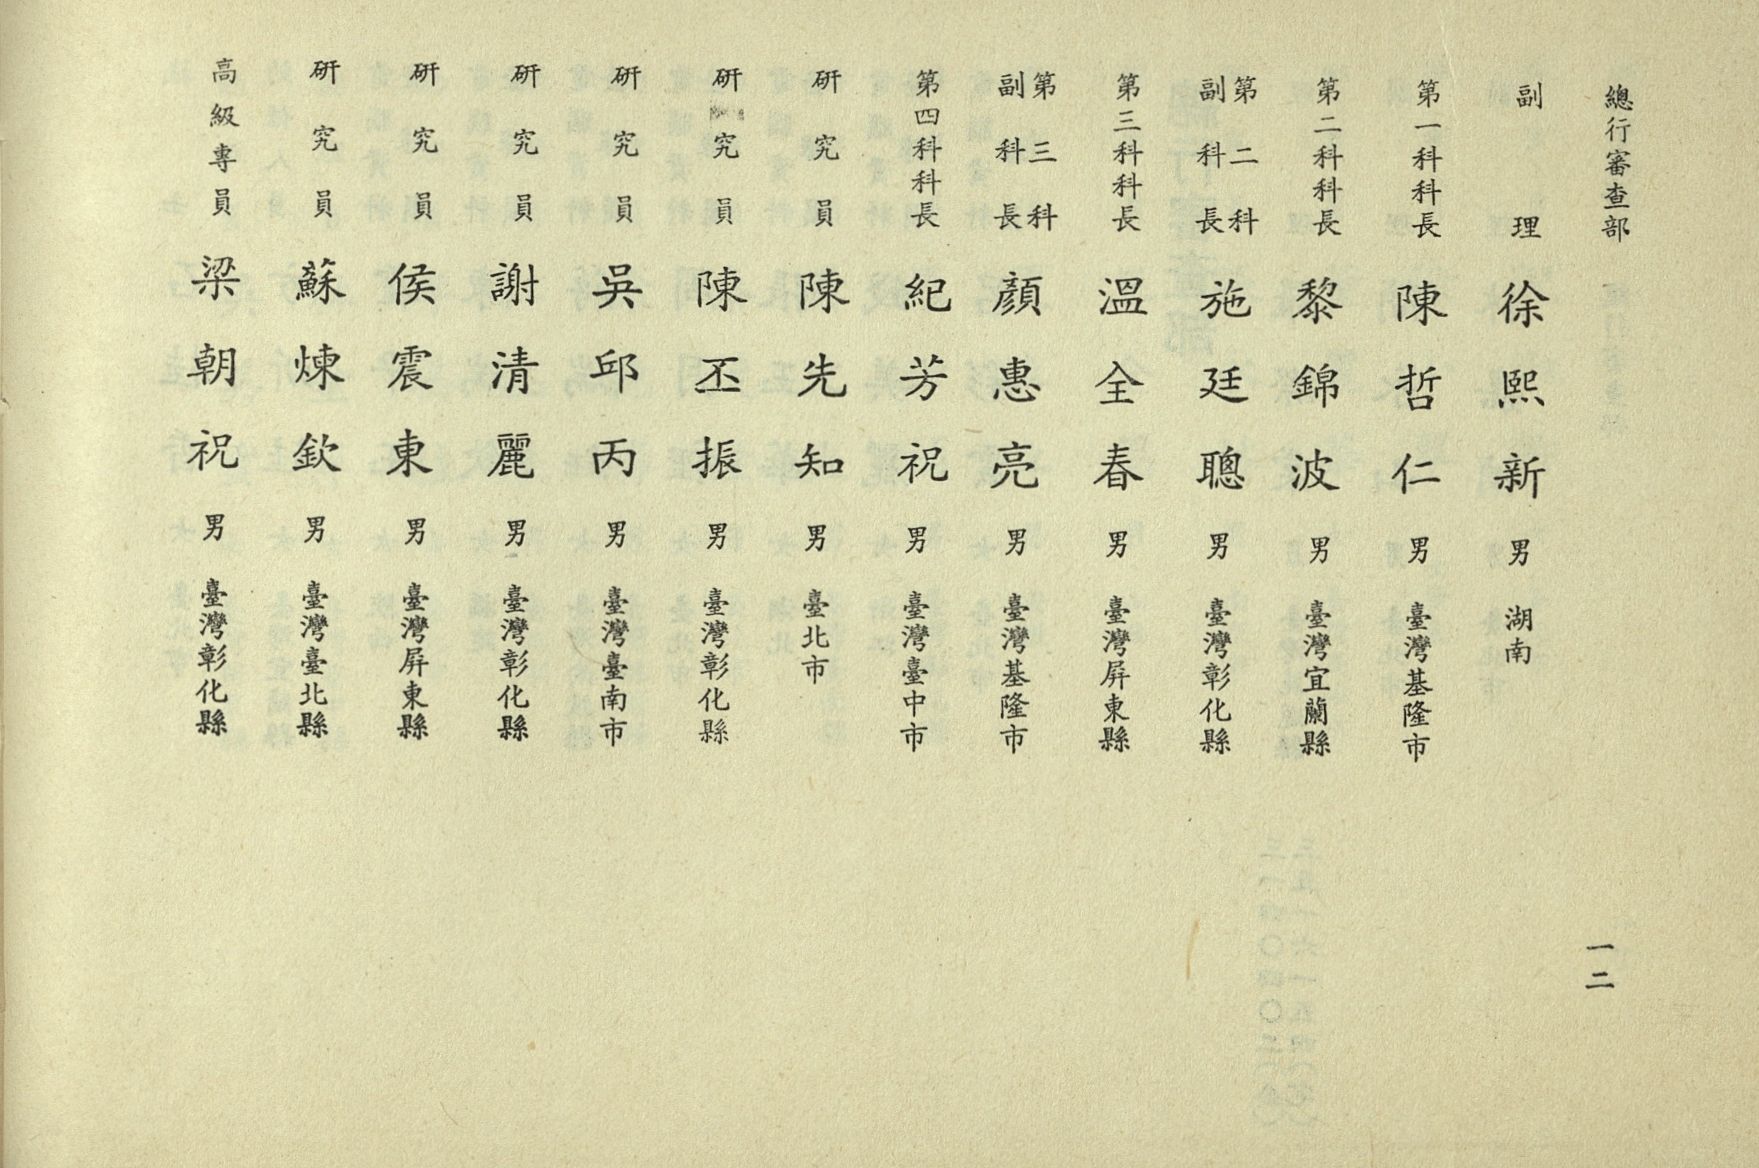 總行審查部
一二
副理 徐熙新 男 湖南
第一科科長 陳哲仁 男 臺灣基隆市
第二科科長 黎錦波 男 臺灣宜蘭縣
第二科副科長 施廷聰 男 臺灣彰化縣
第三科科長 溫全春 男 臺灣屏東縣
第三科副科長 顏惠亮 男 臺灣基隆市
第四科科長 紀芳祝 男 臺灣臺中市
研究員 陳先知 男 臺北市
研究員 陳丕振 男 臺灣彰化縣
研究員 吳邱丙 男 臺灣臺南市
研究員 謝清麗 男 臺灣彰化縣
研究員 侯震東 男 臺灣屏東縣
研究員 蘇煉欽 男 臺灣臺北縣
高級專員 梁朝祝 男 臺灣彰化縣